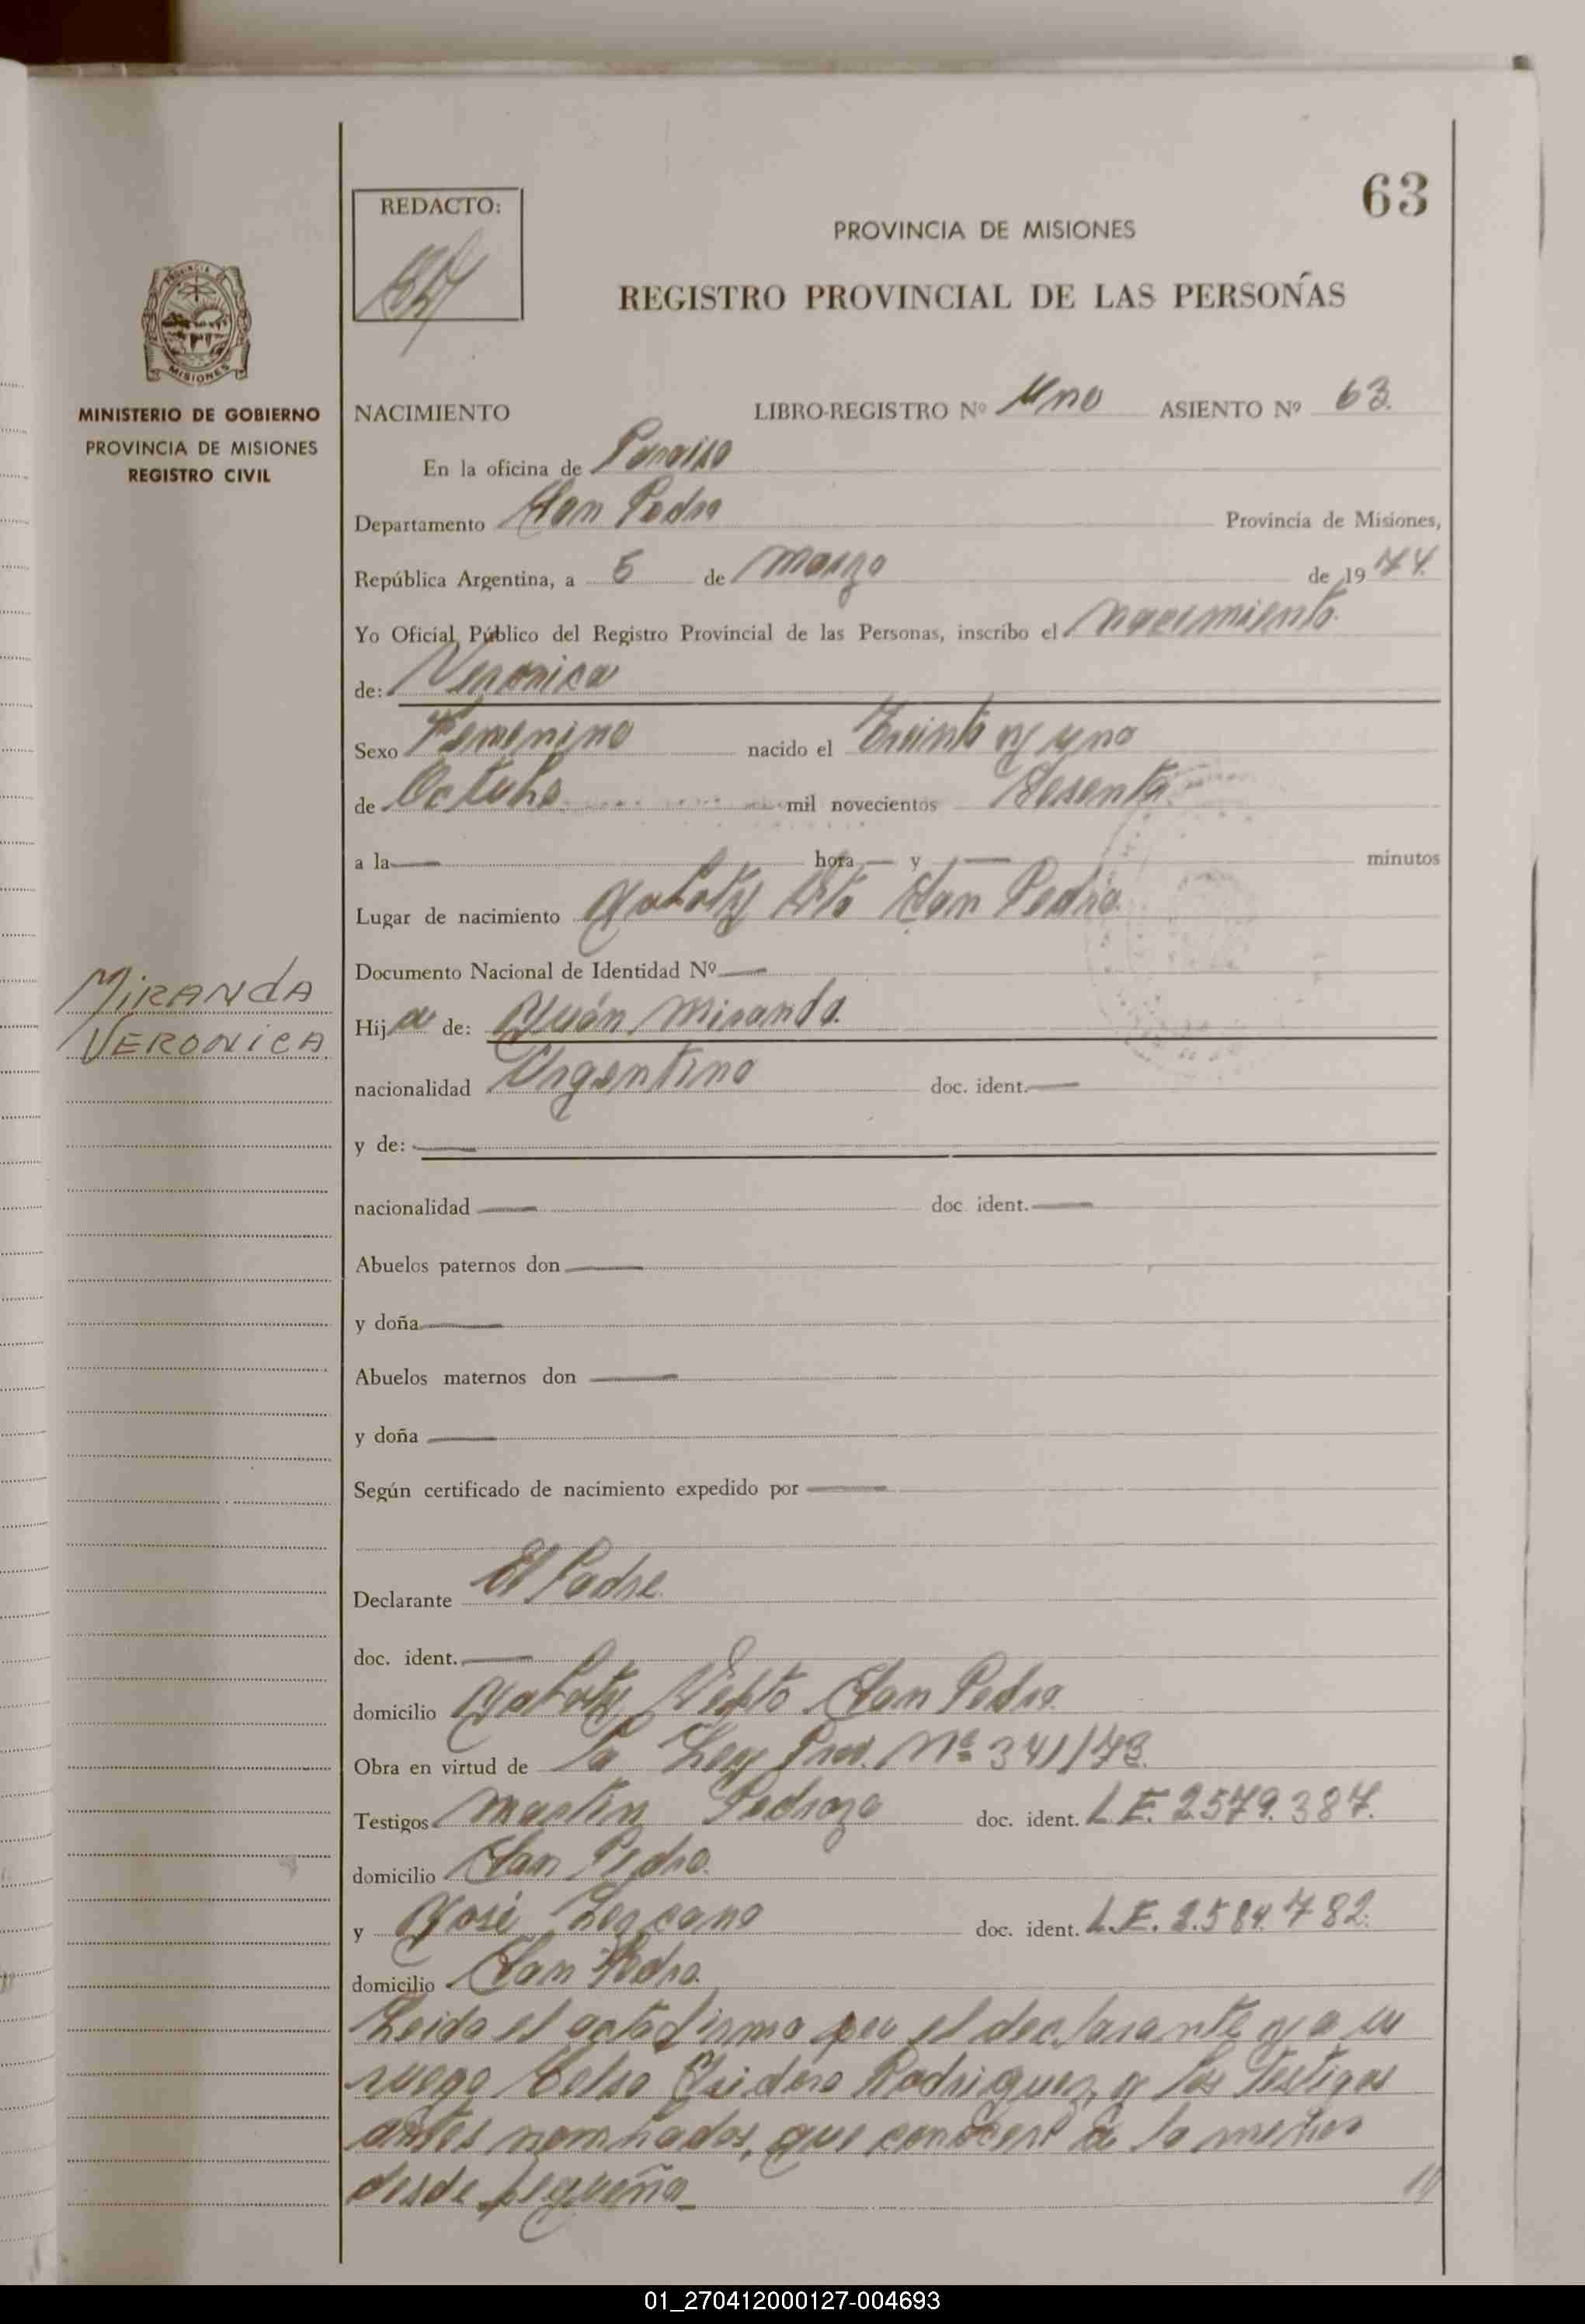 63
REDACTO:
PROVINCIA DE MISIONES
REGISTRO PROVINCIAL DE LAS PERSONAS
MINISTERIO DE GOBIERNO
PROVINCIA DE MISIONES
REGISTRO CIVIL
NACIMIENTO LIBRO-REGISTRO Nº Uno ASIENTO Nº 63.
En la oficina de Paraiso
Departamento San Pedro Provincia de Misiones,
República Argentina, a 5 de Marzo de 1974.
Yo Oficial Público del Registro Provincial de las Personas, inscribo el nacimiento.
de: Veronica
Sexo Femenino nacido el Treinta y uno
de Octubre mil novecientos Sesenta
a la — hora — y — minutos
Lugar de nacimiento Yaboty Dto San Pedro
Documento Nacional de Identidad Nº —
MIRANDA
VERONICA
Hija de: Juán Miranda.
nacionalidad Argentino doc. ident. —
y de: —
nacionalidad — doc ident. —
Abuelos paternos don —
y doña —
Abuelos maternos don —
y doña —
Según certificado de nacimiento expedido por —
Declarante El Padre.
doc. ident. —
domicilio Yaboty Depto San Pedro.
Obra en virtud de La Ley Prov. Nº 341/73.
Testigos Martin Pedrozo doc. ident. L.E. 2579.387.
domicilio San Pedro.
y José Lezcano doc. ident. L.E. 2.584.782.
domicilio San Pedro.
Leida el acta firma por el declarante y a su
ruego Celso Isidoro Rodriguez, y los Testigos
antes nombrados, que conocen a la menor
desde pequeña
01_270412000127-004693